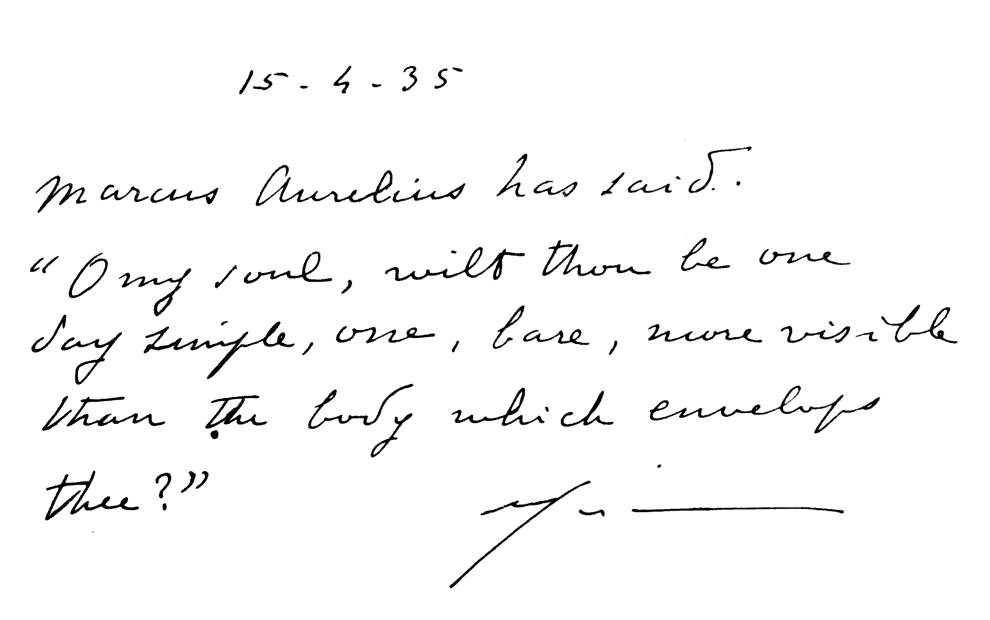 15-4-35
Marcus Aurelius has said:
“O my soul, wilt thou be one
day simple, one, bare, more visible
than the body which envelops
thee?”